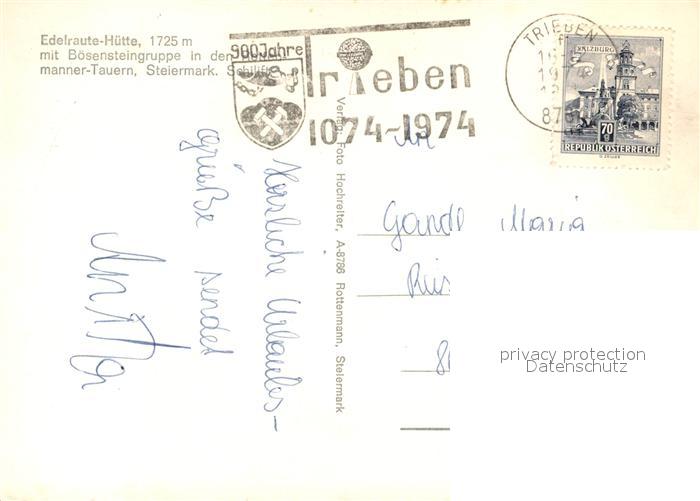 Edelraute-Hütte, 1725 m
mit Bösensteingruppe in den
manner-Tauern, Steiermark. Schilifte
900 Jahre
Trieben
1074-1974
TRIEBEN
SALZBURG
70
REPUBLIK ÖSTERREICH
Verlag: Foto Hochreiter, A-8786 Rottenmann, Steiermark
Herzliche Urlaubs-
grüße sendet
Gandl Maria
privacy protection
Datenschutz